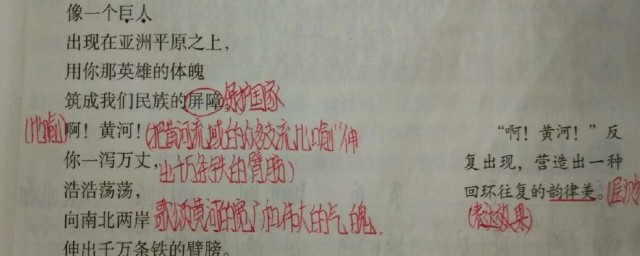 像一个巨人
出现在亚洲平原之上，
用你那英雄的体魄
筑成我们民族的屏障。保护国家
(比喻)啊！黄河！(把黄河流域的众多支流比喻“伸
你一泻万丈，出千万条铁的臂膀)
浩浩荡荡，
向南北两岸 歌颂黄河的宽广和伟大的气魄
伸出千万条铁的臂膀。
“啊！黄河！”反
复出现，营造出一种
回环往复的韵律美。
(表达效果)